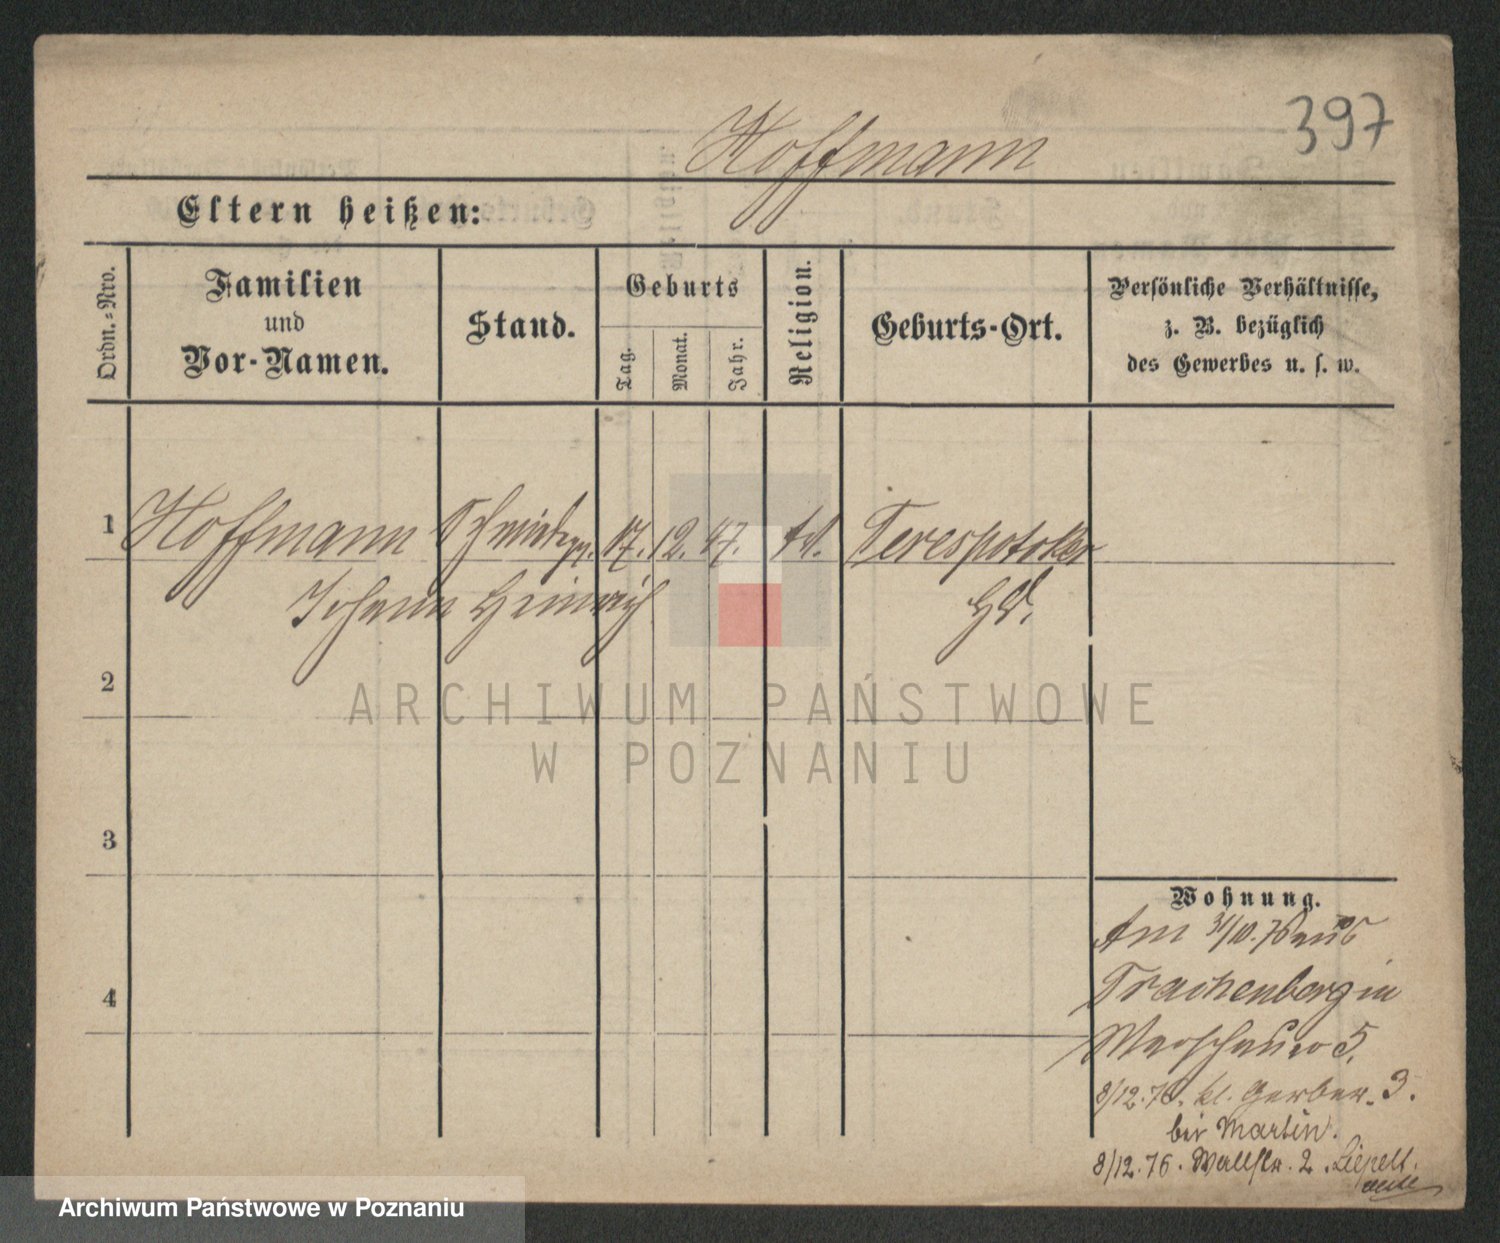 397
Hoffmann
Eltern heißen:
Ordn.-Nro.
Familien
und
Vor-Namen.
Stand.
Geburts
Tag.
Monat.
Jahr.
Religion.
Geburts-Ort.
Persönliche Verhältnisse,
z. B. bezüglich
des Gewerbes u. s. w.
1 Hoffmann 17. 12. 47. Terespotoker
Johann Heinrich Hd.
2
ARCHIWUM PAŃSTWOWE
W POZNANIU
3
4
Wohnung.
Am 31/10. 76 aus
Trachenberg in
Warschauer 5.
8/12. 76. kl. Gerber. 3.
bei Martin.
8/12. 76. Wallstr. 2. Liepelt.
Archiwum Państwowe w Poznaniu